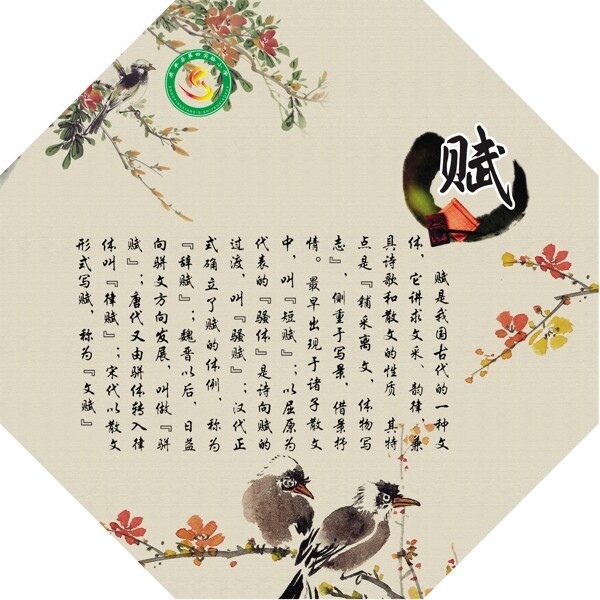 赋
赋是我国古代的一种文
体，它讲求文采、韵律，兼
具诗歌和散文的性质 其特
点是『铺采离文，体物写
志』，侧重于写景，借景抒
情。最早出现于诸子散文
中，叫『短赋』；以屈原为
代表的『骚体』是诗向赋的
过渡，叫『骚赋』；汉代正
式确立了赋的体例，称为
『辞赋』；魏晋以后，日益
向骈文方向发展，叫做『骈
赋』；唐代又由骈体转入律
体叫『律赋』；宋代以散文
形式写赋，称为『文赋』